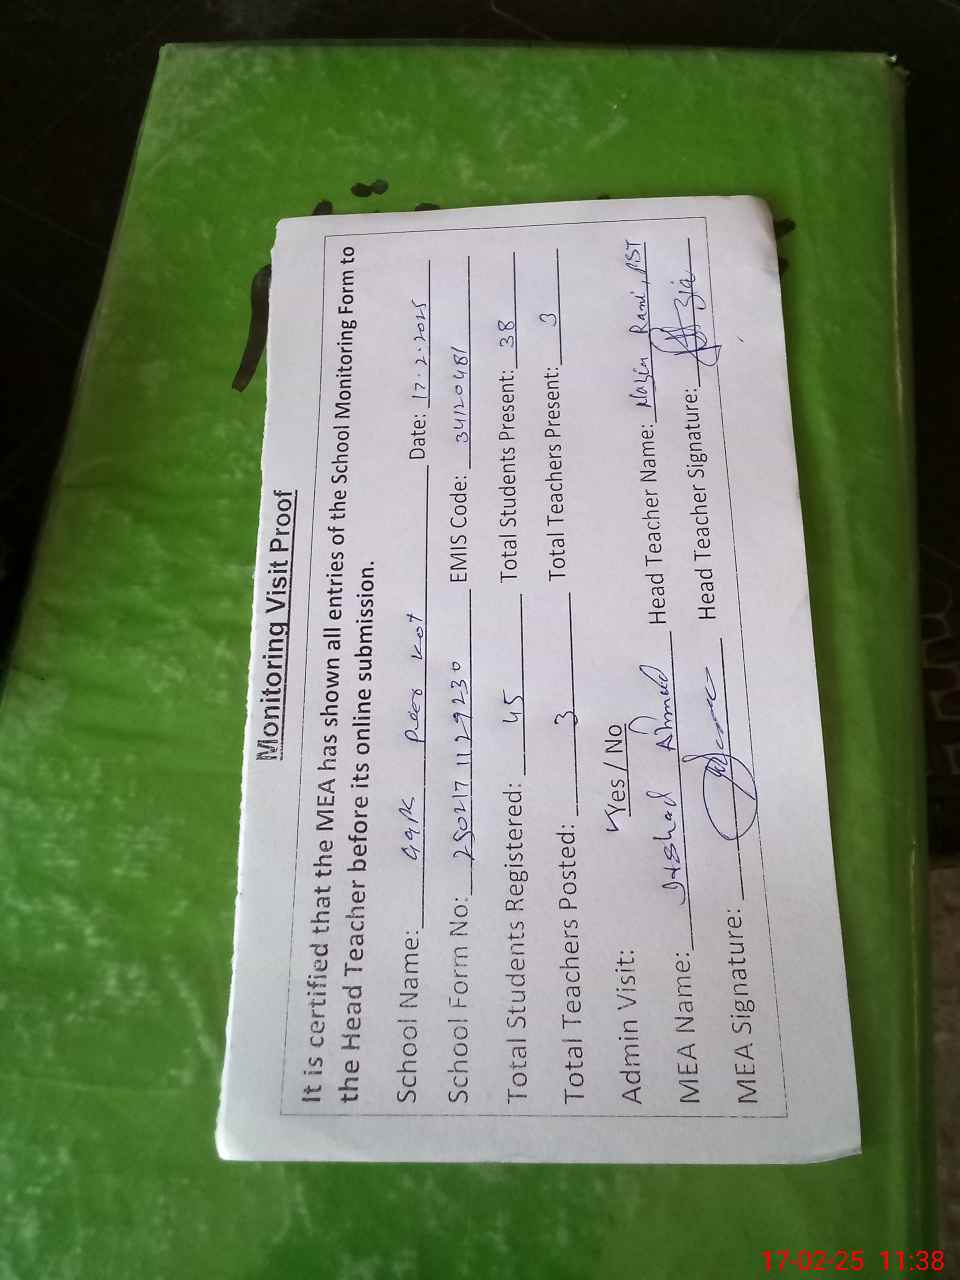 Monitoring Visit Proof
It is certified that the MEA has shown all entries of the School Monitoring Form to
the Head Teacher before its online submission.
School Name: GGPS Peer Kot Date: 17.2.2025
School Form No: 250217 1129230 EMIS Code: 34120481
Total Students Registered: 45 Total Students Present: 38
Total Teachers Posted: 3 Total Teachers Present: 3
Admin Visit: ✓Yes / No
MEA Name: Irshad Ahmed Head Teacher Name: Rani, PST
MEA Signature: Head Teacher Signature:
17-02-25 11:38